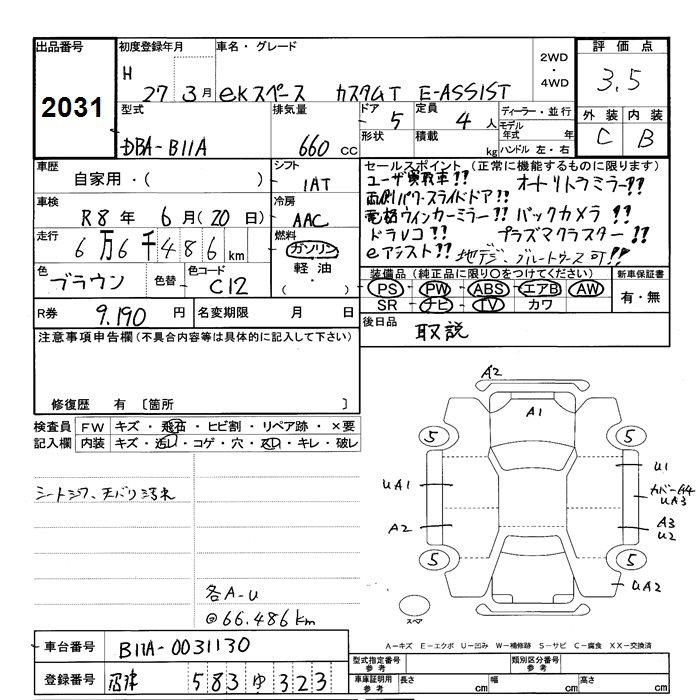 出品番号
2031
初度登録年月
H 27 3月
車名・グレード
eKスペース カスタムT E-ASSIST
2WD
・
4WD
評価点
3.5
型式
DBA-B11A
排気量
660 cc
ドア 5
形状
定員 4 人
積載 kg
ディーラー・並行
モデル年式 年
ハンドル 左・右
外装 内装
C B
車歴
自家用・( )
シフト
IAT
車検
R8年 6月(20日)
冷房
AAC
走行
6万6千486km
燃料
ガソリン
軽油
( )
色
ブラウン
色替
色コード
C12
R券 9.190 円
名変期限 月 日
セールスポイント(正常に機能するものに限ります)
ユーザー買取車!! オートリトラミラー!!
両側パワースライドドア!!
電格ウインカーミラー!! バックカメラ!!
ドラレコ!! プラズマクラスター!!
eアシスト!! 地デジ、ブルートゥース可!!
装備品(純正品に限り○をつけてください)
PS PW ABS エアB AW
SR ナビ TV カワ
新車保証書
有・無
後日品 取説
注意事項申告欄(不具合内容等は具体的に記入して下さい)
修復歴 有 〔箇所 〕
検査員記入欄
FW キズ・飛石・ヒビ割・リペア跡・×要
内装 キズ・汚レ・コゲ・穴・凹・キレ・破レ
シートシワ、天バリ汚れ
各A-U
@66.486km
A2
A1
5
5
UA1
U1
カバー44
UA3
A2
A3
U2
5
5
UA2
スペア
A-キズ E-エクボ U-凹み W-補修跡 S-サビ C-腐食 XX-交換済
車台番号 B11A-0031130
登録番号 沼津 583 ゆ 323
型式指定番号
参考
類別区分番号
参考
車庫証明用
参考
長さ cm
幅 cm
高さ cm